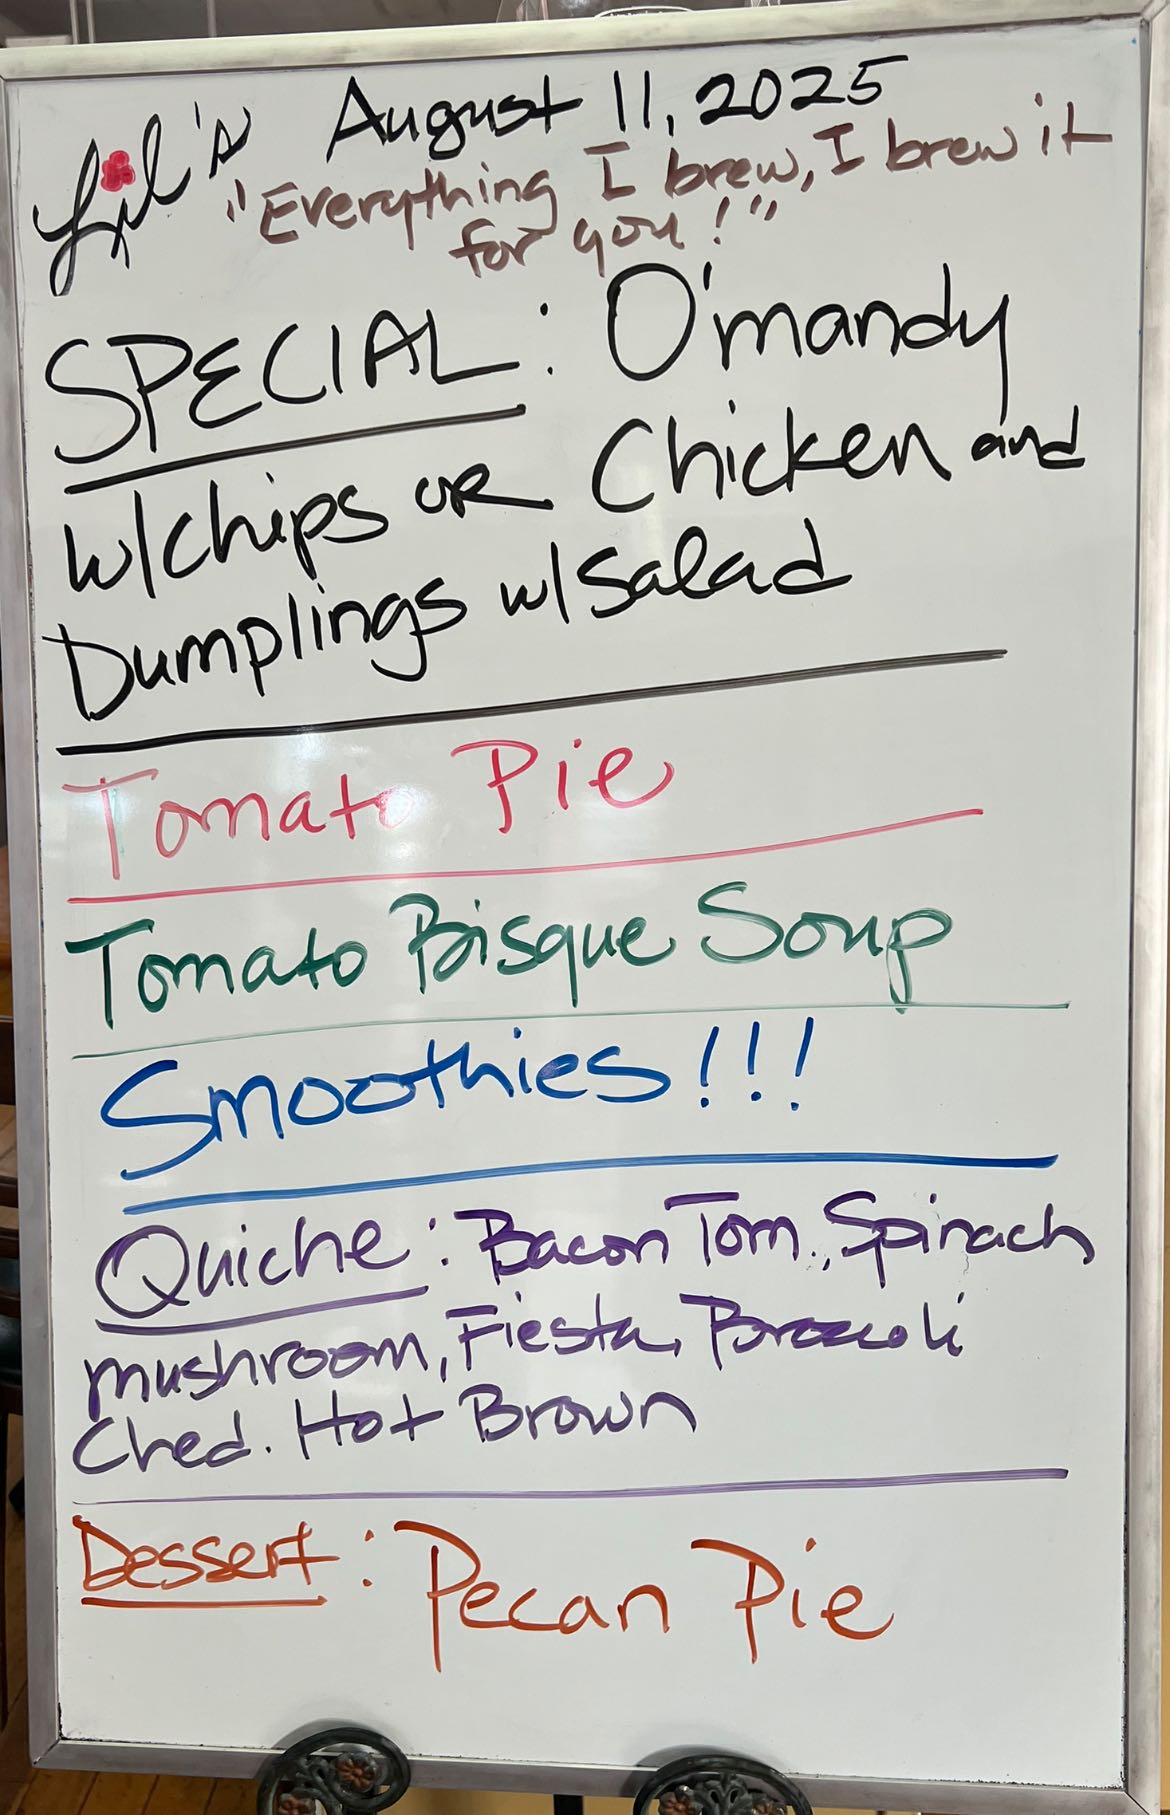 Lil's August 11, 2025
"Everything I brew, I brew it
for you!"
SPECIAL: O'mandy
w/chips or Chicken and
Dumplings w/salad
Tomato Pie
Tomato Bisque Soup
Smoothies!!!
Quiche: Bacon Tom., Spinach
mushroom, Fiesta, Broccoli
Ched. Hot Brown
Dessert: Pecan Pie